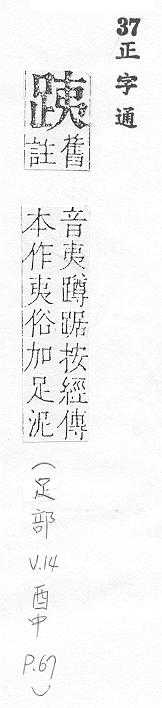 37正字通
䠽
舊註
音夷蹲踞按經傳
本作夷俗加足泥
(足部 V.14 酉中 P.67)